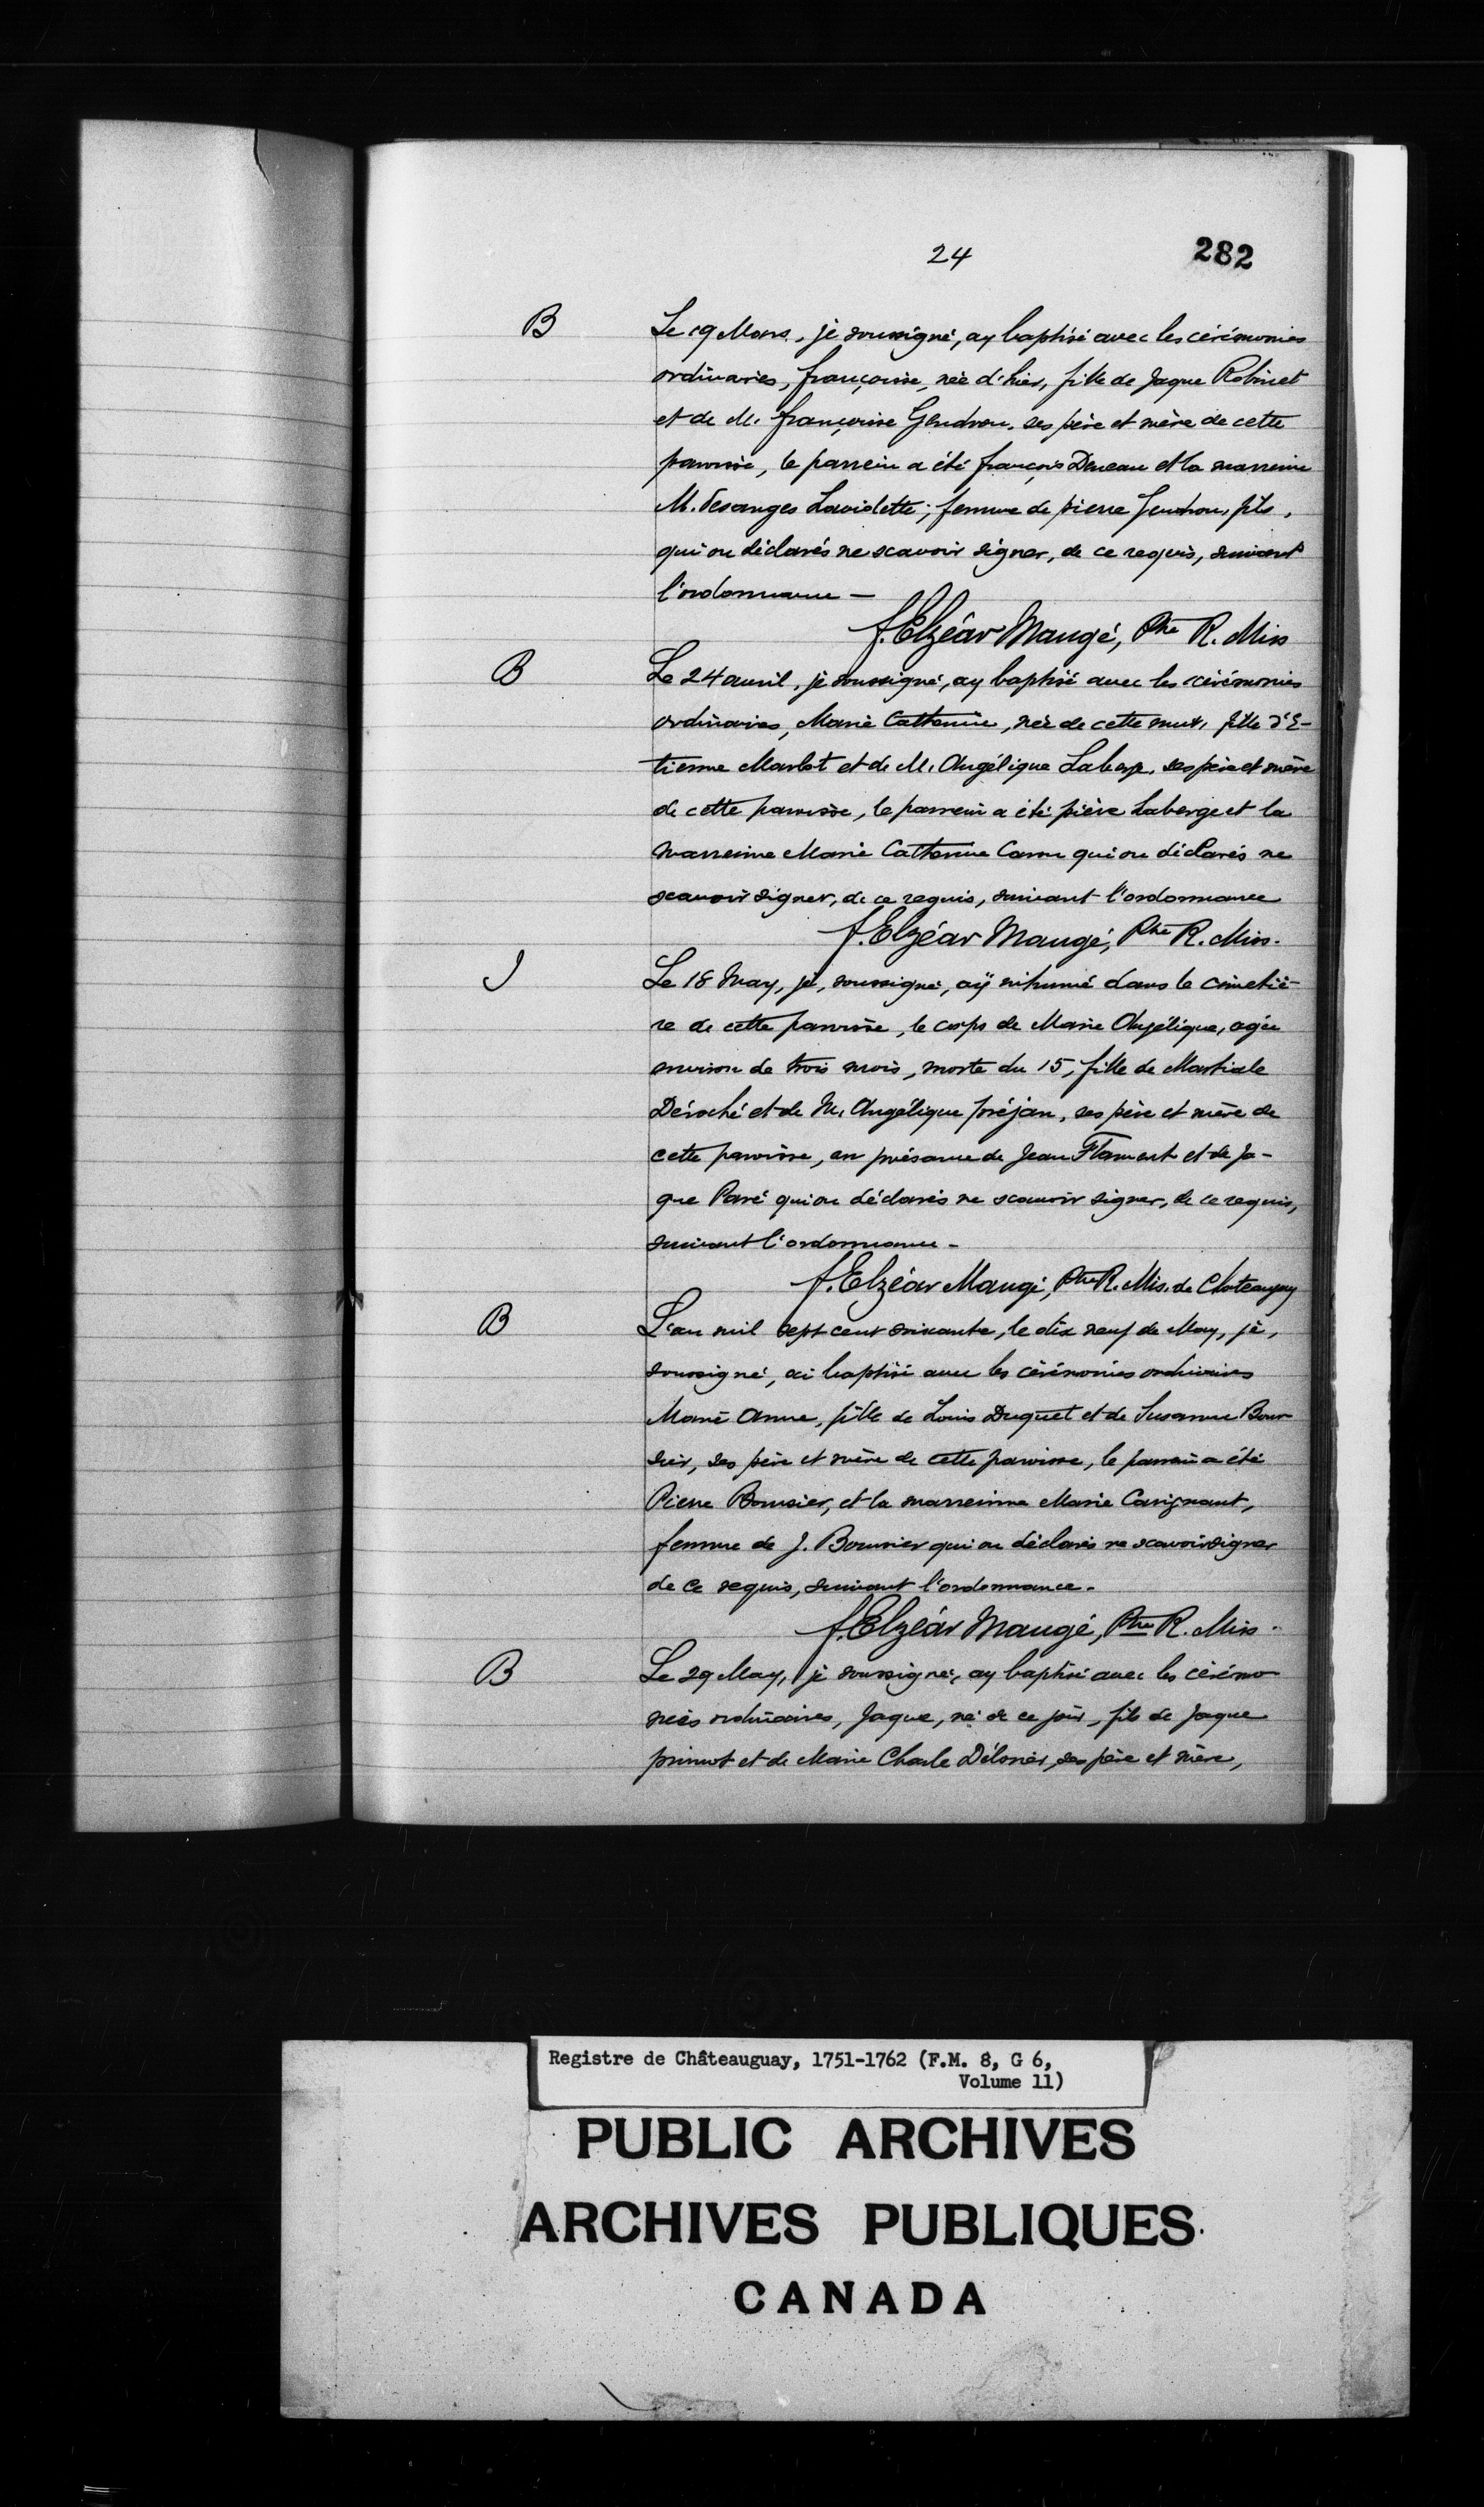 24 282
B Le 19 Mars, je soussigné, ay baptisé avec les cérémonies
ordinaires, françoise, née d'hier, fille de Jaque Robinet
et de M. françoise Gendron, ses père et mère de cette
paroisse, le parrein a été françois Deneau et la marreine
M. desanges Laviolette; femme de pierre Gendron, fils,
qui on déclarés ne scavoir signer, de ce requis, suivant
l'ordonnance —
f. Elzéar Maugé, Ptre R. Miss
B Le 24 avril, je soussigné, ay baptisé avec les cérémonies
ordinaires, Marie Catherine, née de cette nuit, fille d'E-
tienne Marlot et de M. Angélique Laberge, ses père et mère
de cette paroisse, le parrein a été pière Laberge et la
marreine Marie Catherine qui on déclarés ne
scavoir signer, de ce requis, suivant l'ordonnance
f. Elzéar Maugé, Ptre R. Miss.
J Le 18 May, je, soussigné, aÿ inhumé dans le cimetiè-
re de cette paroisse, le corps de Marie Angélique, agée
environ de trois mois, morte du 15, fille de Martiale
Déroché et de M. Angélique préjan, ses père et mère de
cette paroisse, en présance de Jean Flament et de Ja-
que Paré qui on déclarés ne scavoir signer, de ce requis,
suivant l'ordonnance -
f. Elzéar Maugé, Ptre R. Mis. de Chateaugay
B L'an mil sept cent soixante, le dix neuf de May, je,
soussigné, ai baptisé avec les cérémonies ordinaires
Marie Anne, fille de Louis Duquet et de Susanne Bour
sier, ses père et mère de cette paroisse, le parrein a été
Pierre Boursier, et la marreinne Marie Carignant,
femme de J. Boursier qui on déclarés ne scavoir signer
de ce requis, suivant l'ordonnance.
f. Elzéar Maugé, Ptre R. Miss.
B Le 29 May, je soussigné, ay baptisé avec les cérémo
nies ordinaires, Jaque, né de ce jour, fils de Jaque
primot et de Marie Charle Délorier, ses père et mère,
Registre de Châteauguay, 1751-1762 (F.M. 8, G 6,
Volume 11)
PUBLIC ARCHIVES
ARCHIVES PUBLIQUES
CANADA